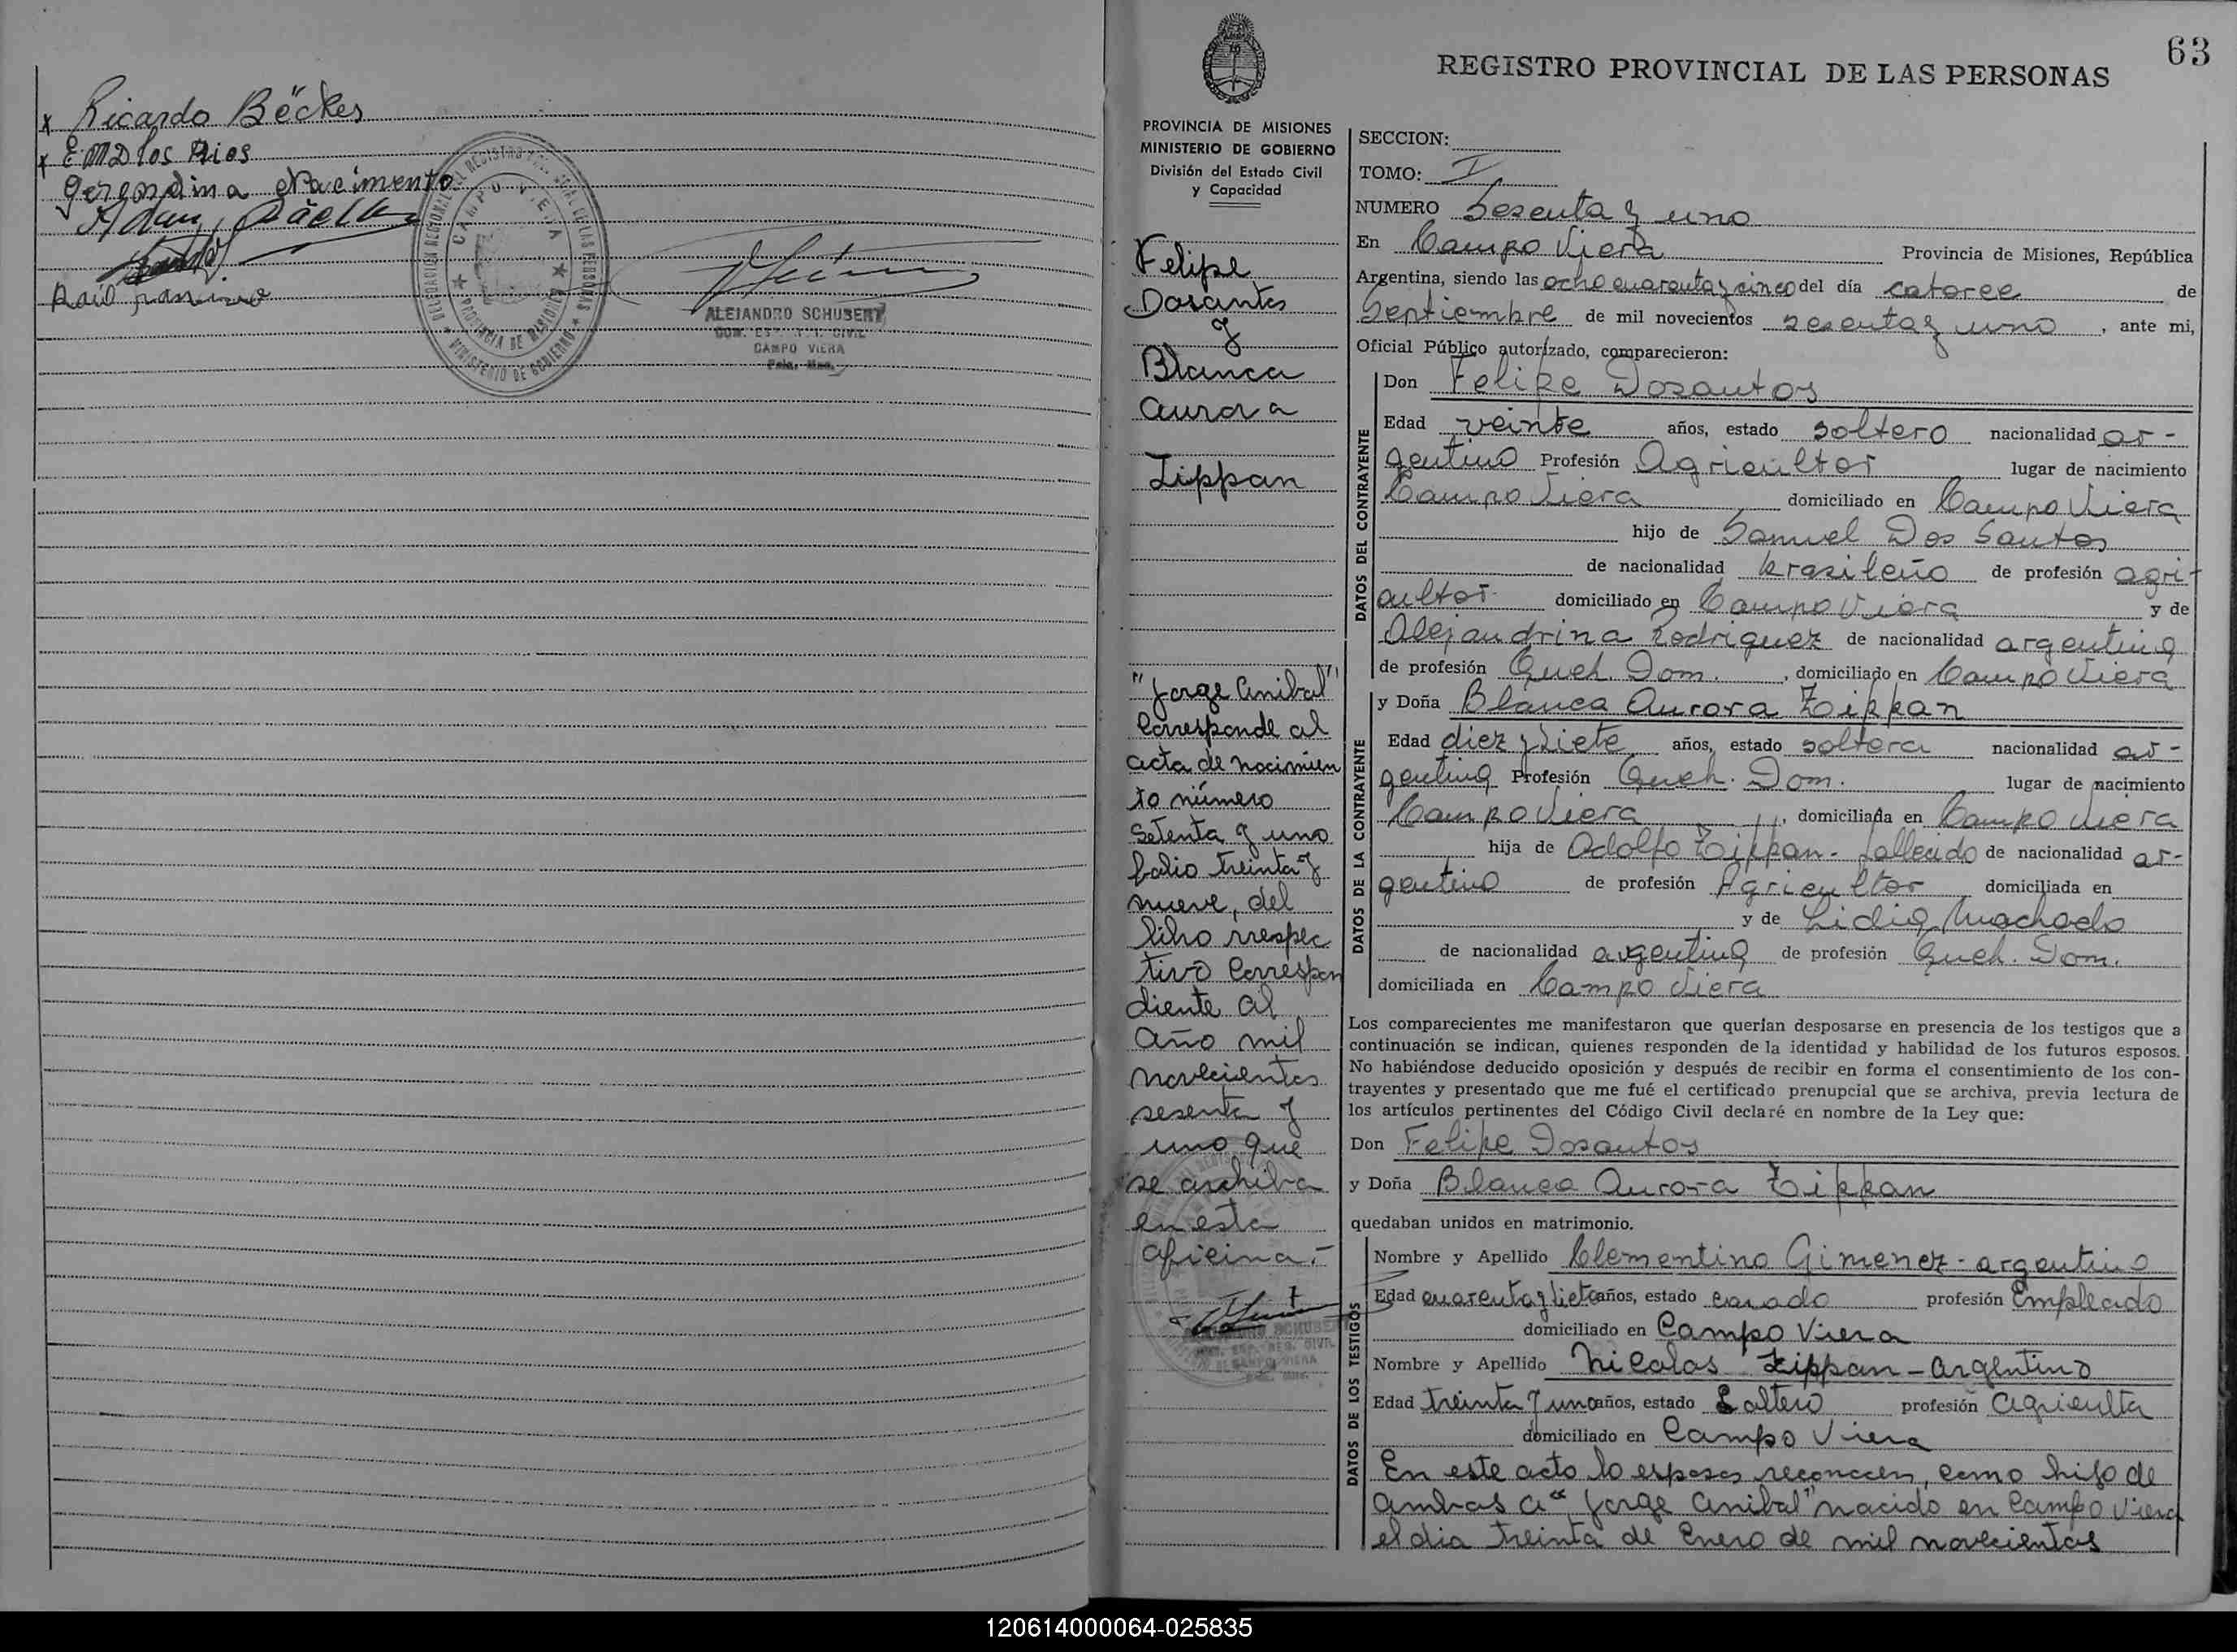 x Ricardo Böckes
x E M D los Rios
Gerondina Nacimento
Raúl
DELEGACION REGIONAL DEL REGISTRO PROVINCIAL DE LAS PERSONAS
CAMPO VIERA
PROVINCIA DE MISIONES
MINISTERIO DE GOBIERNO
ALEJANDRO SCHUBERT
CAMPO VIERA
63
REGISTRO PROVINCIAL DE LAS PERSONAS
PROVINCIA DE MISIONES
MINISTERIO DE GOBIERNO
División del Estado Civil
y Capacidad
Felipe
Dosantos
y
Blanca
Aurora
Zippan
"Jorge Anibal"
Corresponde al
acta de nacimien
to número
Setenta y uno
folio treinta y
nueve, del
libro rrespec
tivo Correspon
diente al
Año mil
novecientos
sesenta y
uno que
se archiba
en esta
oficina.-
SECCION:
TOMO: I
NUMERO Sesenta y uno
En Campo Viera Provincia de Misiones, República
Argentina, siendo las ocho cuarenta y cinco del día catorce de
Septiembre de mil novecientos sesenta y uno, ante mi,
Oficial Público autorizado, comparecieron:
DATOS DEL CONTRAYENTE
Don Felipe Dosantos
Edad veinte años, estado soltero nacionalidad ar-
gentino Profesión Agricultor lugar de nacimiento
Campo Viera domiciliado en Campo Viera
hijo de Samuel Dos Santos
de nacionalidad brasileño de profesión agri-
cultor domiciliado en Campo Viera y de
Alejandrina Rodriguez de nacionalidad argentina
de profesión Queh. Dom., domiciliado en Campo Viera
DATOS DE LA CONTRAYENTE
y Doña Blanca Aurora Zippan
Edad diez y siete años, estado soltera nacionalidad ar-
gentina Profesión Queh. Dom. lugar de nacimiento
Campo Viera, domiciliada en Campo Viera
hija de Adolfo Zippan - fallecido de nacionalidad ar-
gentino de profesión Agricultor domiciliada en
y de Lidia Machado
de nacionalidad argentina de profesión Queh. Dom.
domiciliada en Campo Viera
Los comparecientes me manifestaron que querían desposarse en presencia de los testigos que a
continuación se indican, quienes responden de la identidad y habilidad de los futuros esposos.
No habiéndose deducido oposición y después de recibir en forma el consentimiento de los con-
trayentes y presentado que me fué el certificado prenupcial que se archiva, previa lectura de
los artículos pertinentes del Código Civil declaré en nombre de la Ley que:
Don Felipe Dosantos
y Doña Blanca Aurora Zippan
quedaban unidos en matrimonio.
DATOS DE LOS TESTIGOS
Nombre y Apellido Clementino Gimenez - argentino
Edad cuarenta y siete años, estado casado profesión Empleado
domiciliado en Campo Viera
Nombre y Apellido Nicolas Zippan - Argentino
Edad treinta y uno años, estado Soltero profesión Agriculta
domiciliado en Campo Viera
En este acto lo esposos reconocen, como hijo de
ambos a "Jorge Anibal" nacido en Campo Viera
el dia treinta de Enero de mil novecientos
120614000064-025835